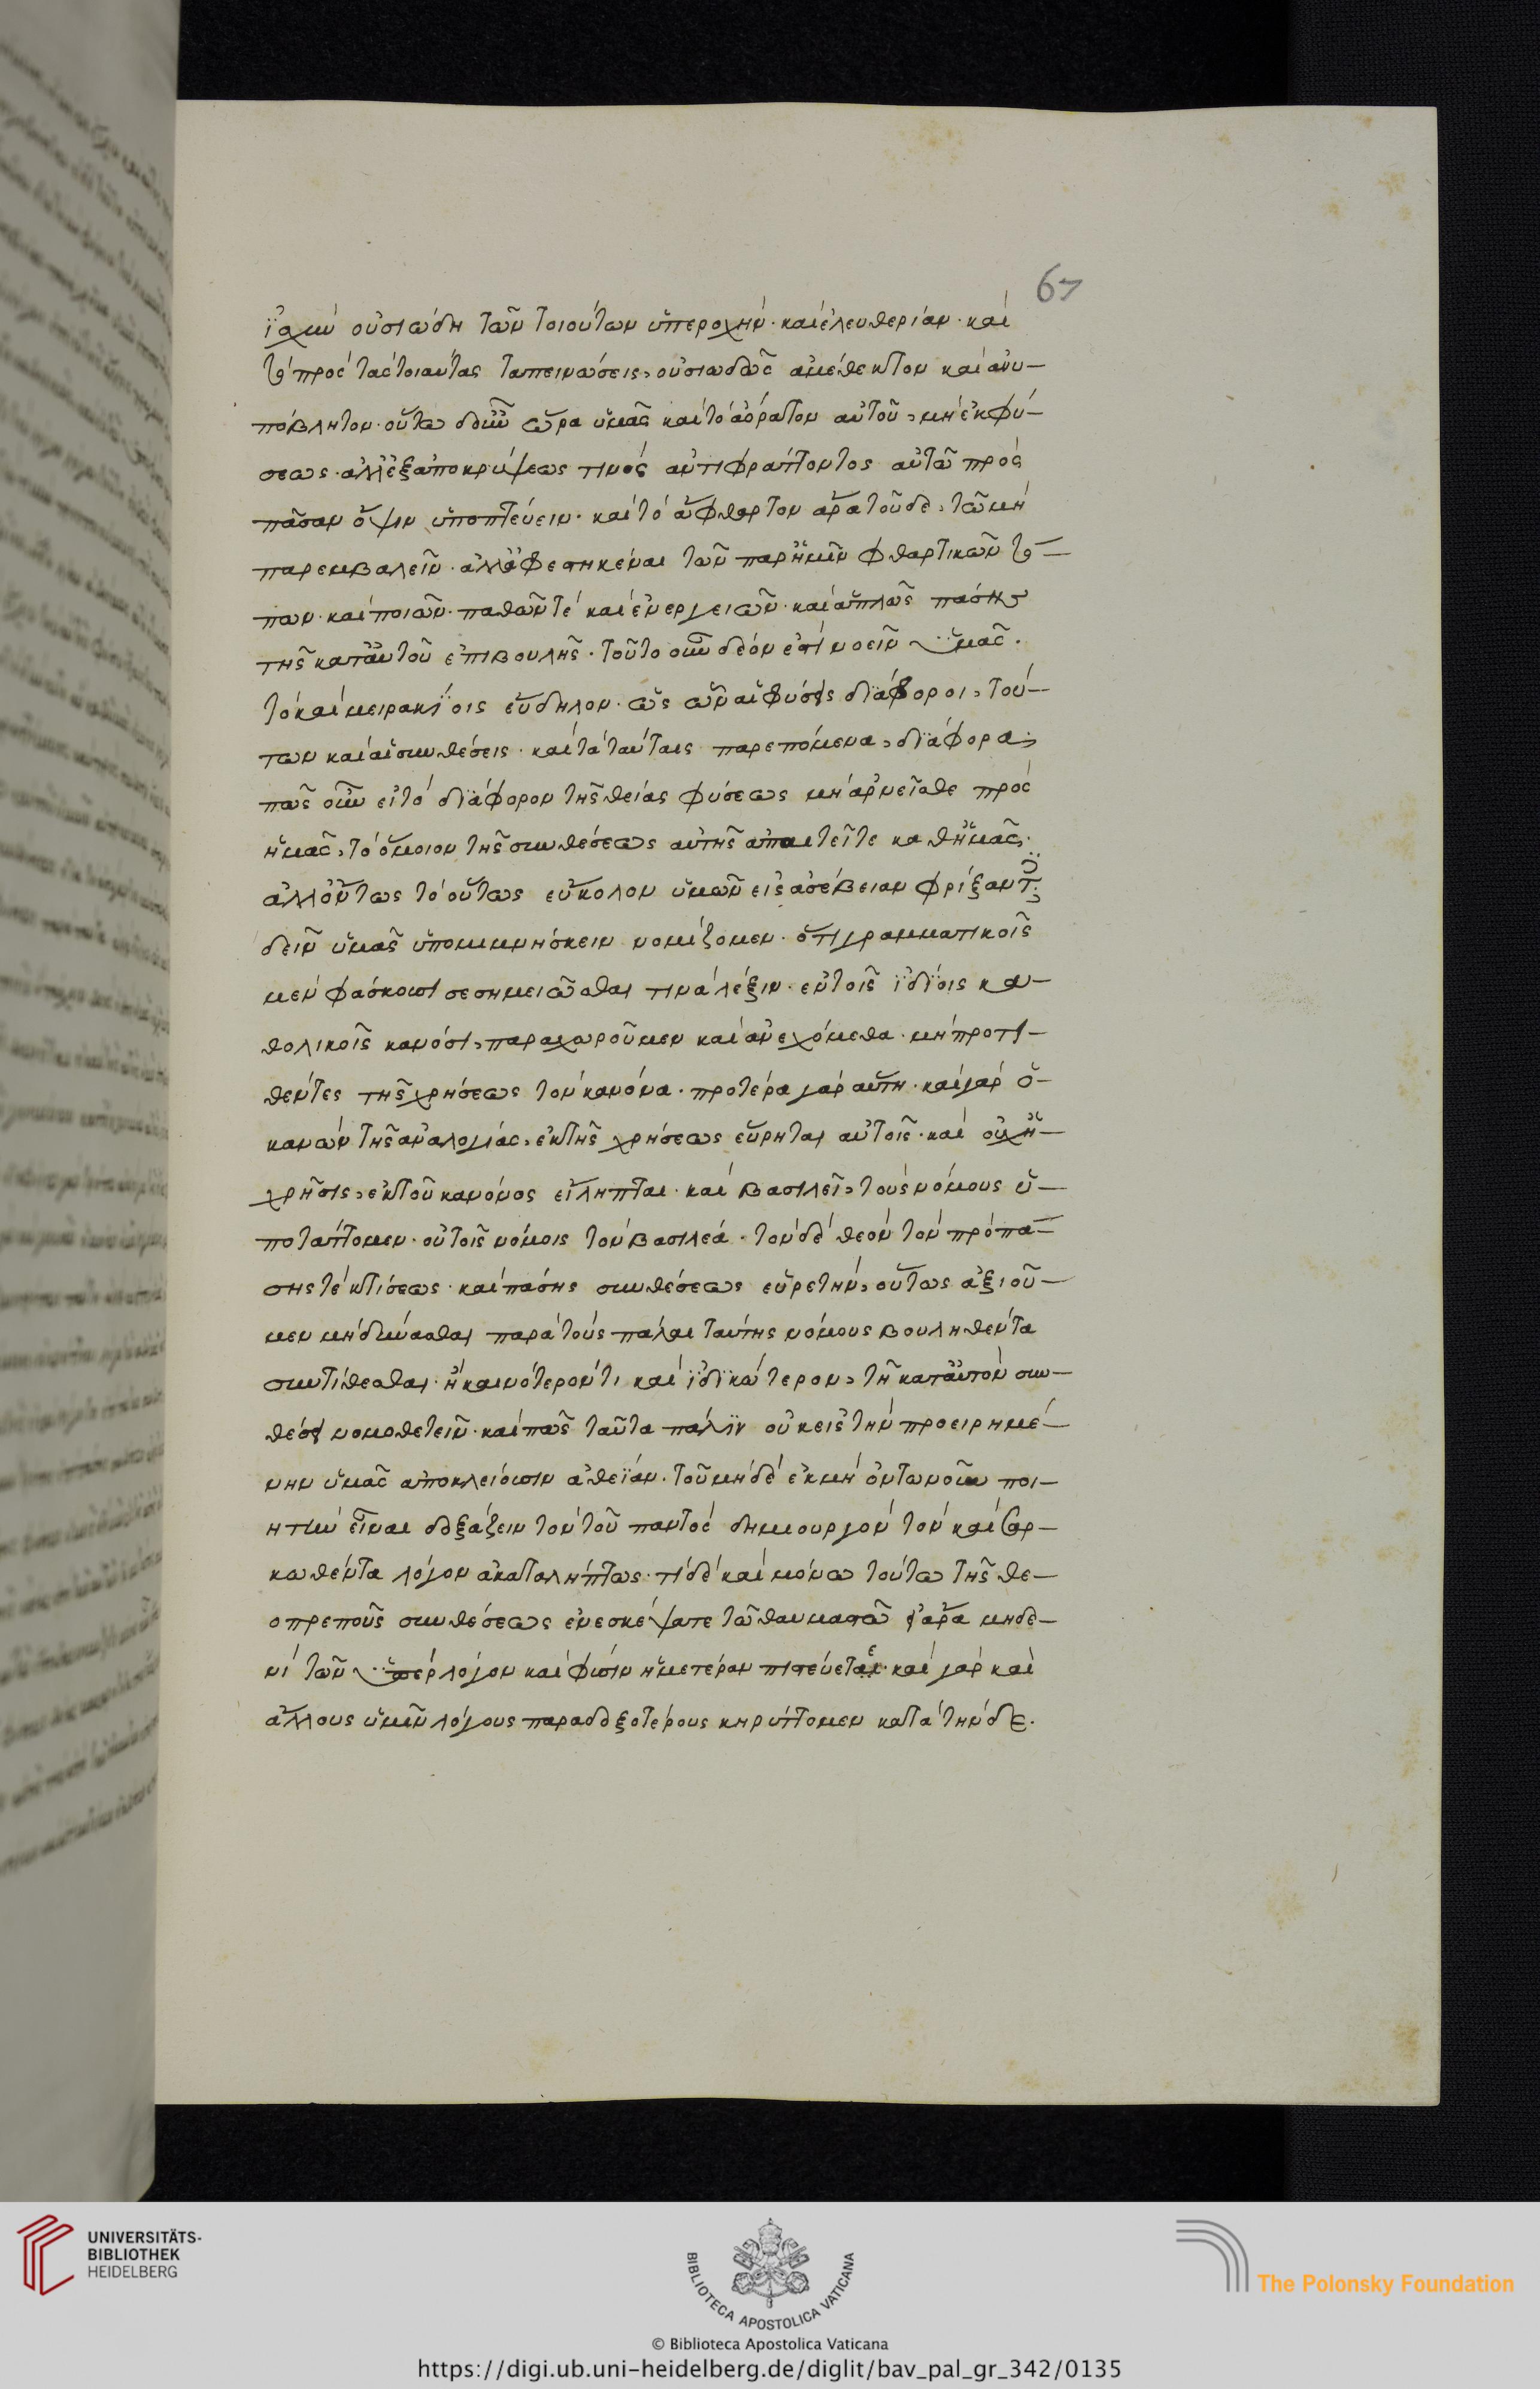 67
ἰσχὺν οὐσιώδη τῶν τοιούτων ὑπεροχήν· καὶ ἐλευθερίαν· καὶ
τὸ πρὸς τὰς τοιαύτας ταπεινώσεις, οὐσιωδῶς ἀμέθεκτον καὶ ἀνυ-
πόβλητον· οὕτω δ' οὖν ὥρα ὑμᾶς καὶ τὸ ἀόρατον αὐτοῦ, μὴ ἐκ φύ-
σεως· ἀλλ' ἐξ ἀποκρύψεως τινὸς ἀντιφράττοντος αὐτῶ πρὸς
πᾶσαν ὄψιν ὑποπτεύειν· καὶ τὸ ἄφθαρτον ἄρα τοῦδε, τῶ μὴ
παρεμβαλεῖν· ἀλλ' ἀφεστηκέναι τῶν παρ' ἡμῖν φθαρτικῶν τό-
πων· καὶ ποιῶν· παθῶν τὲ καὶ ἐνεργειῶν· καὶ ἁπλῶς πάσης
τῆς κατ' αὐτοῦ ἐπιβουλῆς· τοῦτο οὖν δέον ἐστὶ νοεῖν ὑμᾶς.
τὸ καὶ μειρακίοις εὔδηλον· ὡς ὧν αἱ φύσεις διάφοροι, τού-
των καὶ αἱ συνθέσεις· καὶ τὰ ταύταις παρεπόμενα, διάφορα·
πῶς οὖν εἰ τὸ διάφορον τῆς θείας φύσεως μὴ ἀρνεῖσθε πρὸς
ἡμᾶς, τὸ ὅμοιον τῆς συνθέσεως αὐτῆς ἀπαιτεῖτε καθ' ἡμᾶς;
ἀλλ' ὄντως τὸ οὕτως εὔκολον ὑμῶν εἰς ἀσέβειαν φρίξαντες
δεῖν ὑμᾶς ὑπομιμνήσκειν νομίζομεν· ὅτι γραμματικοῖς
μὲν φάσκουσι σεσημειῶσθαι τινὰ λέξιν· ἐν τοῖς ἰδίοις κα-
θολικοῖς κανόσι, παραχωροῦμεν καὶ ἀνεχόμεθα· μὴ προτι-
θέντες τῆς χρήσεως τὸν κανόνα· προτέρα γὰρ αὕτη· καὶ γὰρ ὁ
κανὼν τῆς ἀναλογίας, ἐκ τῆς χρήσεως εὕρηται αὐτοῖς· καὶ οὐχ ἡ
χρῆσις, ἐκ τοῦ κανόνος εἴληπται· καὶ βασιλεῖ, τοὺς νόμους ὑ-
ποτάττομεν· οὐ τοῖς νόμοις τὸν βασιλέα· τὸν δὲ θεὸν τὸν πρὸ πά-
σης τὲ κτίσεως· καὶ πάσης συνθέσεως εὑρετὴν, οὕτως ἀξιοῦ-
μεν μὴ δύνασθαι παρὰ τοὺς πάλαι ταύτης νόμους βουληθέντα
συντίθεσθαι· ἢ καινότερόν τι καὶ ἰδικώτερον, τῆ κατ' αὐτὸν συν-
θέσει νομοθετεῖν· καὶ πῶς ταῦτα πάλιν οὐκ εἰς τὴν προειρημέ-
νην ὑμᾶς ἀποκλείουσιν ἀθεΐαν· τοῦ μηδὲ ἐκ μὴ ὄντων ποι-
ητὴν εἶναι δοξάζειν τὸν τοῦ παντὸς δημιουργὸν τὸν καὶ σαρ-
κωθέντα λόγον ἀκαταλήπτως· τί δὲ καὶ μόνω τούτω τῆς θε-
οπρεποῦς συνθέσεως ἐνεσκέψατε τῶ θαυμαστῶ εἰ ἄρα μηδε-
νὶ τῶν ὑπὲρ λόγον καὶ φύσιν ἡμετέραν πιστεύεται· καὶ γὰρ καὶ
ἄλλους ὑμῖν λόγους παραδοξοτέρους κηρύττομεν κατὰ τήνδε.
UNIVERSITÄTS-
BIBLIOTHEK
HEIDELBERG
BIBLIOTECA APOSTOLICA VATICANA
The Polonsky Foundation
© Biblioteca Apostolica Vaticana
https://digi.ub.uni-heidelberg.de/diglit/bav_pal_gr_342/0135